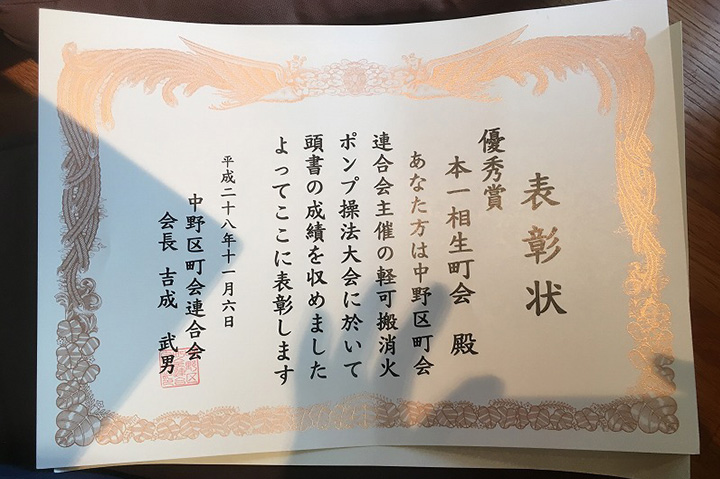 表彰状
優秀賞
本一相生町会 殿
あなた方は中野区町会
連合会主催の軽可搬消火
ポンプ操法大会に於いて
頭書の成績を収めました
よってここに表彰します
平成二十八年十一月六日
中野区町会連合会
会長 吉成 武男